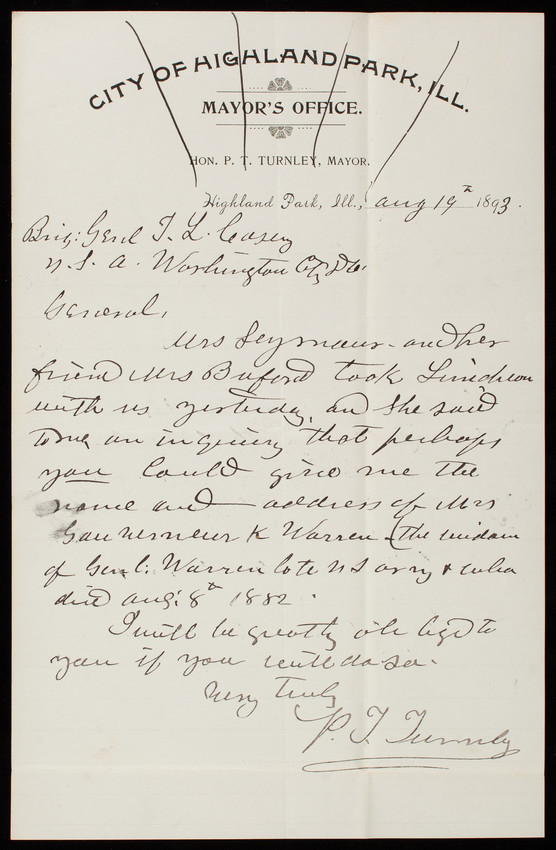 CITY OF HIGHLAND PARK, ILL.
MAYOR'S OFFICE.
HON. P. T. TURNLEY, MAYOR.
Highland Park, Ill., Aug 19th 1893.
Brig: Genl T. L. Casey
U. S. A. Washington City D.C.
General,
Mrs Seymour and her
friend Mrs Buford took Luncheon
with us yesterday, and she said
to me, on inquiry that perhaps
you could give me the
name and address of Mrs
Gouverneur K Warren (the widow
of Genl: Warren late U S army & who
died Aug: 8th 1882.
I will be greatly obliged to
you if you will do so.
Very truly
P. T. Turnley